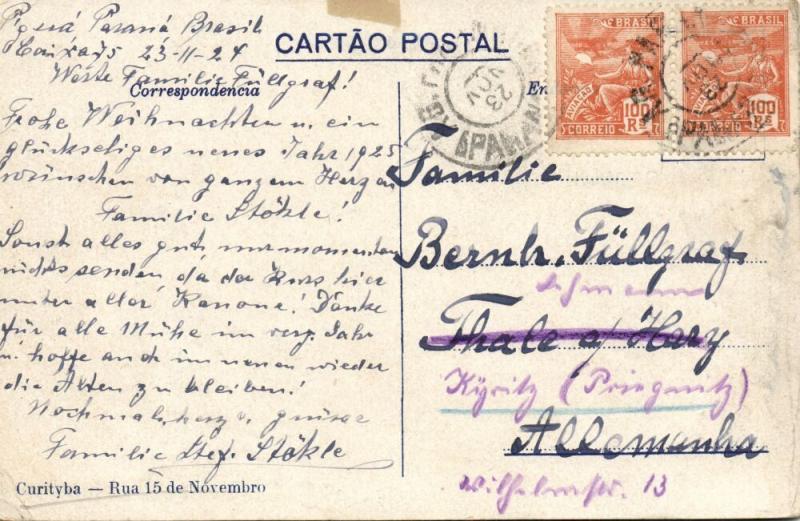 Paraná Brasil
Caixa 75 23-11-24
Werte Familie Füllgraf!
Frohe Weihnachten u. ein
glückseliges neues Jahr 1925
wünschen von ganzem Herzen
Familie Stökle!
Sonst alles gut, nur momentan
nichts senden, da der Kurs hier
unter aller Kanone! Danke
für alle Mühe im verg. Jahr
u. hoffe auch im neuen wieder
die Alten zu bleiben!
Nochmals herzl. grüsse
Familie Stef. Stökle
Curityba — Rua 15 de Novembro
CARTÃO POSTAL
Correspondencia
En
BRASIL
AVIAÇÃO
100 Rs
CORREIO
BRASIL
100 Rs
CORREIO
23 NOV
PARANÁ
Familie
Bernh. Füllgraf
Thale a/ Harz
Kyritz (Prignitz)
Allemanha
Wilhelmstr. 13